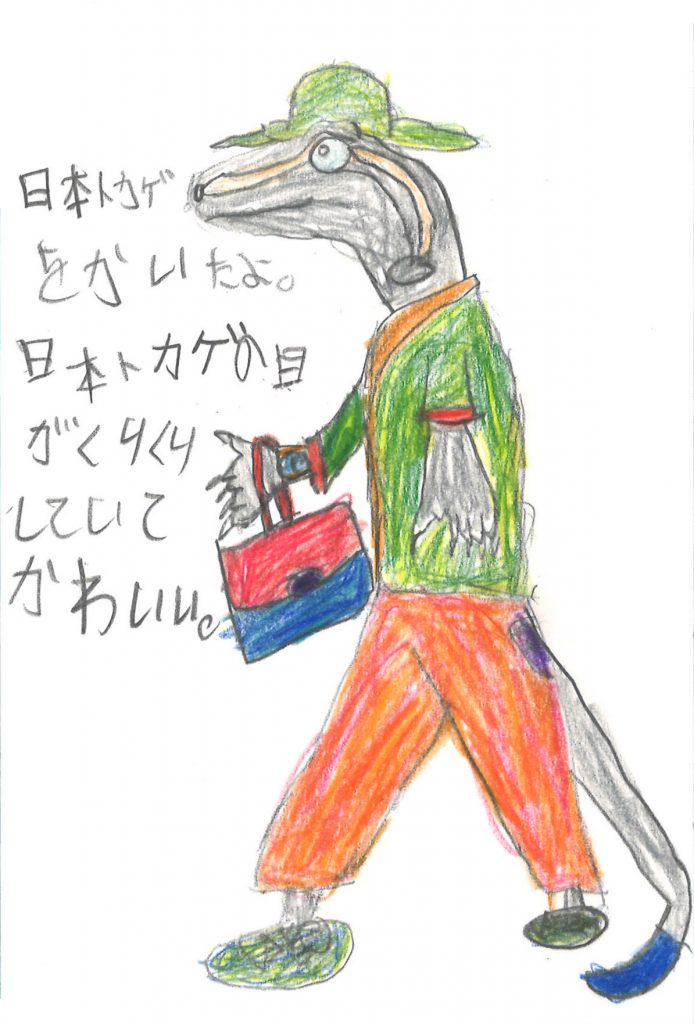 日本トカゲ
をかいたよ。
日本トカゲの目
がくりくり
していて
かわいい。